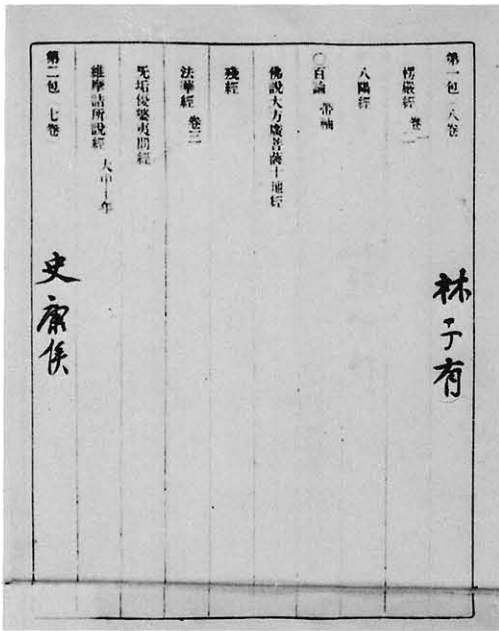 第一包 八卷 林子有
楞嚴經 卷一
八陽經
〇百論 帶軸
佛說大方廣菩薩十地經
殘經
法華經 卷三
无垢優婆夷問經
維摩詰所說經 大中十年
第二包 七卷 史康侯